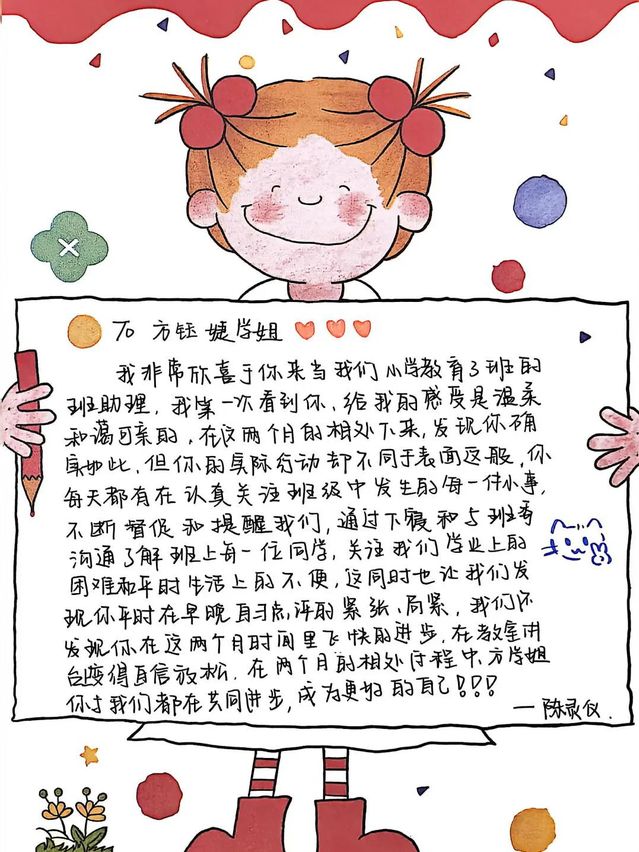 To 方钰婕学姐
我非常欣喜于你来当我们小学教育3班的
班助理,我第一次看到你,给我的感受是温柔
和蔼可亲的,在这两个月的相处下来,发现你确
实如此,但你的实际行动却不同于表面这般,你
每天都有在认真关注班级中发生的每一件小事,
不断督促和提醒我们,通过下寝和与班委
沟通了解班上每一位同学,关注我们学业上的
困难和平时生活上的不便,这同时也让我们发
现你平时在早晚自习点评的紧张、局紧,我们仍
发现你在这两个月时间里飞快的进步,在教室讲
台变得自信放松,在两个月的相处过程中,方学姐
你与我们都在共同进步,成为更好的自己!!!
—陈灵仪.